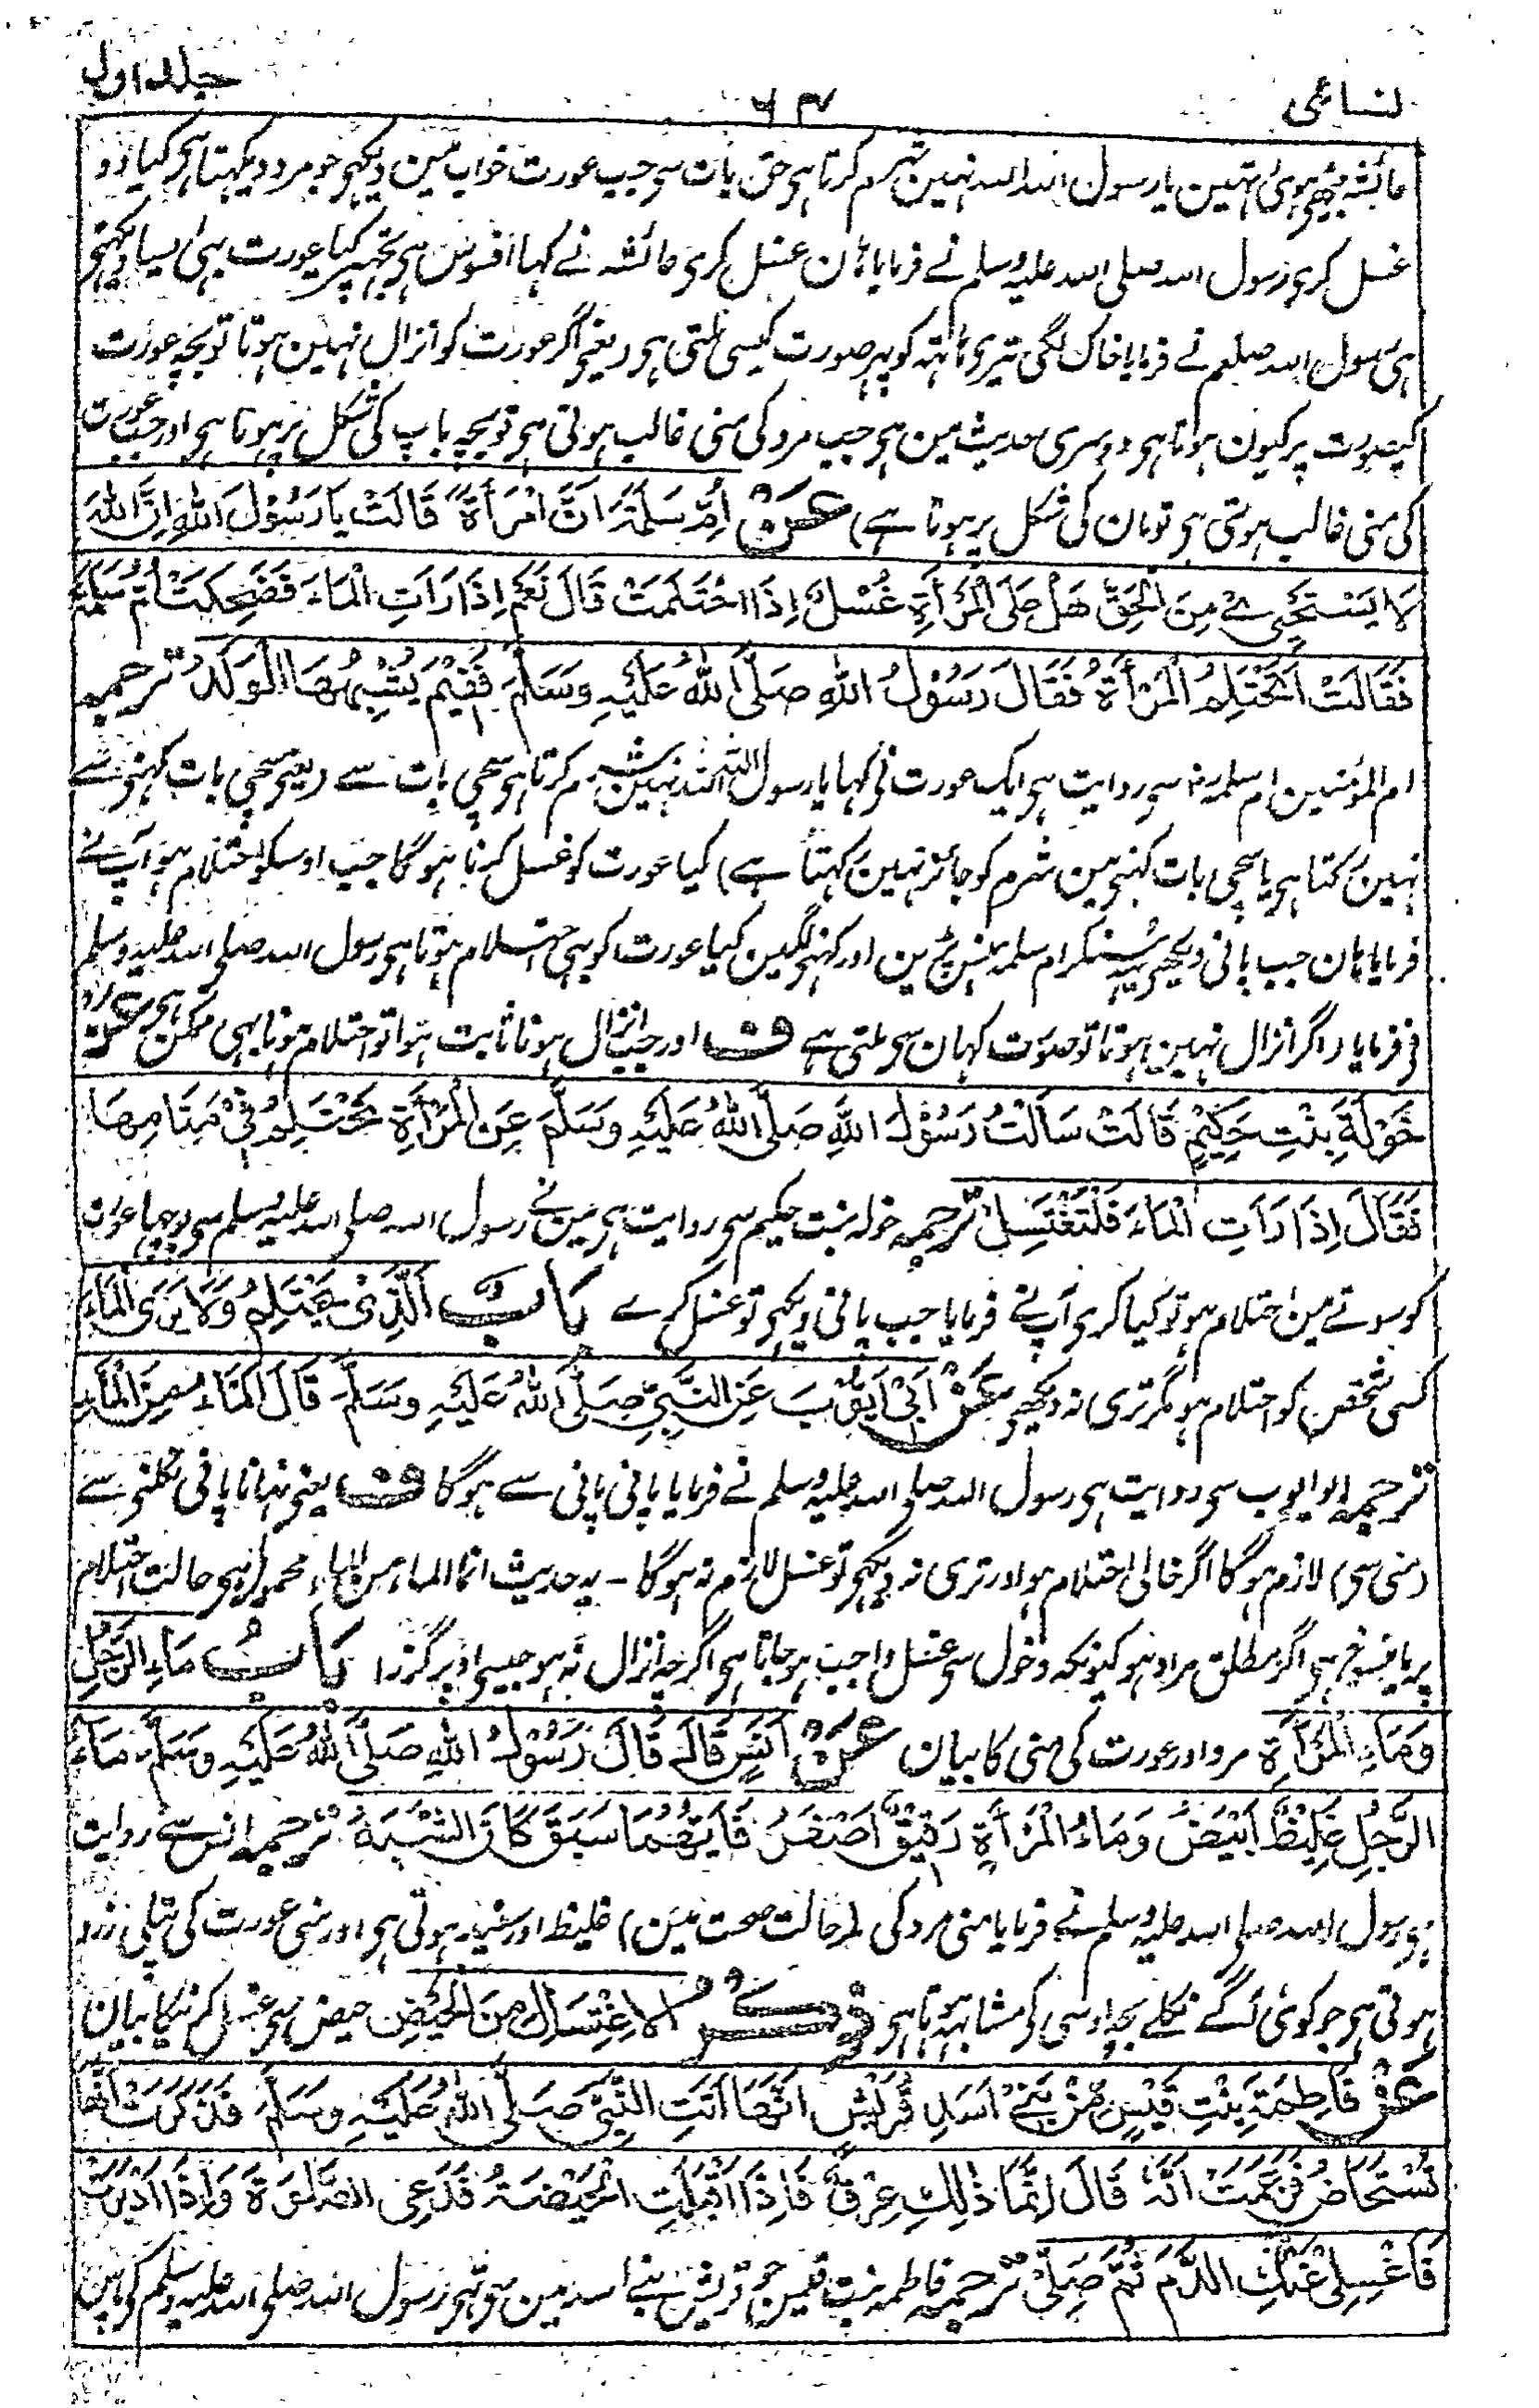 نسائی ۶۴ جلد اول
عائشہ بیٹھی ہوئی تہین یا رسول اللہ اللہ نہین شرم کرتا ہی حق بات سی جب عورت خواب مین دیکہی جو مرد دیکہتا ہی کیا وہ
غسل کری رسول اللہ صلی اللہ علیہ وسلم نے فرمایا ہان غسل کری عائشہ نے کہا افسوس ہی تجہپر کیا عورت بہی ایسا دیکہتی
ہی رسول اللہ صلعم نے فرمایا خاک لگی تیری ہاتہہ کو پہر صورت کیسی ملتی ہی (یعنی اگر عورت کو انزال نہین ہوتا تو بچہ عورت
کیصورت پر کیون ہوتا ہی دوسری حدیث مین ہی جب مرد کی منی غالب ہوتی ہی تو بچہ باپ کی شکل پر ہوتا ہی اور جب عورت
کی منی غالب ہوتی ہی تو مان کی شکل پر ہوتا ہے) عَنْ اُمِّ سَلَمَةَ اَنَّ امْرَأَةً قَالَتْ يَا رَسُوْلَ اللهِ اِنَّ اللهَ
لَا يَسْتَحْيِيْ مِنَ الْحَقِّ هَلْ عَلَى الْمَرْأَةِ غُسْلٌ اِذَا احْتَلَمَتْ قَالَ نَعَمْ اِذَا رَاَتِ الْمَاءَ فَضَحِكَتْ اُمُّ سَلَمَةَ
فَقَالَتْ اَتَحْتَلِمُ الْمَرْأَةُ فَقَالَ رَسُوْلُ اللهِ صَلَّى اللهُ عَلَيْهِ وَسَلَّمَ فَفِيْمَ يُشْبِهُهَا الْوَلَدُ ترجمہ
ام المؤمنین ام سلمہ رض سی روایت ہی ایک عورت نی کہا یا رسول اللہ اللہ نہین شرم کرتا ہی سچی بات سے (یعنی سچی بات کہنی سے
نہین رکتا ہی یا سچی بات کہنی مین شرم کو جائز نہین رکہتا ہے) کیا عورت کو غسل کرنا ہوگا جب اوسکو احتلام ہو آپ نے
فرمایا ہان جب پانی دیکہی یہ سنکر ام سلمہ ہنس پڑین اور کہنی لگین کیا عورت کو بہی احتلام ہوتا ہی رسول اللہ صلی اللہ علیہ وسلم
نی فرمایا (اگر انزال نہین ہوتا تو صورت کہان سی ملتی ہے ف اور جب انزال ہونا ثابت ہوا تو احتلام ہونا بہی ممکن ہی عَنْ
خَوْلَةَ بِنْتِ حَكِيْمٍ قَالَتْ سَاَلْتُ رَسُوْلَ اللهِ صَلَّى اللهُ عَلَيْهِ وَسَلَّمَ عَنِ الْمَرْأَةِ تَحْتَلِمُ فِيْ مَنَامِهَا
فَقَالَ اِذَا رَاَتِ الْمَاءَ فَلْتَغْتَسِلْ ترجمہ خولہ بنت حکیم سی روایت ہی مین نے رسول اللہ صلی اللہ علیہ وسلم سی پوچہا عورت
کو سوتے مین احتلام ہو تو کیا کری آپ نے فرمایا جب پانی دیکہی تو غسل کرے بَابُ الَّذِيْ يَحْتَلِمُ وَلَا يَرَى الْمَاءَ
کسی شخص کو احتلام ہو مگر تری نہ دیکہی عَنْ اَبِيْ اَيُّوْبَ عَنِ النَّبِيِّ صَلَّى اللهُ عَلَيْهِ وَسَلَّمَ قَالَ الْمَاءُ مِنَ الْمَاءِ
ترجمہ ابو ایوب سی روایت ہی رسول اللہ صلی اللہ علیہ وسلم نے فرمایا پانی پانی سے ہوگا ف یعنی نہانا پانی نکلنی سے
(منی سی) لازم ہوگا اگر خالی احتلام ہو اور تری نہ دیکہی تو غسل لازم نہ ہوگا ۔ یہ حدیث انما الماء من الماء محمول ہی حالت احتلام
پر یا منسوخ ہی اگر مطلق مراد ہو کیونکہ دخول سی غسل واجب ہوجاتا ہی اگرچہ انزال نہ ہو جیسی اوپر گزرا بَابُ مَاءِ الرَّجُلِ
وَمَاءِ الْمَرْأَةِ مرد اور عورت کی منی کا بیان عَنْ اَنَسٍ قَالَ قَالَ رَسُوْلُ اللهِ صَلَّى اللهُ عَلَيْهِ وَسَلَّمَ مَاءُ
الرَّجُلِ غَلِيْظٌ اَبْيَضُ وَمَاءُ الْمَرْأَةِ رَقِيْقٌ اَصْفَرُ فَاَيُّهُمَا سَبَقَ كَانَ الشَّبَهُ ترجمہ انس سے روایت
ہی رسول اللہ صلی اللہ علیہ وسلم نے فرمایا منی مرد کی (حالت صحت مین) غلیظ اور سفید ہوتی ہی اور منی عورت کی پتلی زرد
ہوتی ہی جو کوئی آگے نکلے بچہ اوسی کی مشابہ ہوتا ہی ذِكْرُ الْاِغْتِسَالِ مِنَ الْحَيْضِ حیض سی غسل کرنیکا بیان
عَنْ فَاطِمَةَ بِنْتِ قَيْسٍ مِّنْ بَنِيْ اَسَدِ قُرَيْشٍ اَنَّهَا اَتَتِ النَّبِيَّ صَلَّى اللهُ عَلَيْهِ وَسَلَّمَ فَذَكَرَتْ اَنَّهَا
تُسْتَحَاضُ فَزَعَمَتْ اَنَّهُ قَالَ اِنَّمَا ذٰلِكِ عِرْقٌ فَاِذَا اَقْبَلَتِ الْحَيْضَةُ فَدَعِي الصَّلٰوةَ وَاِذَا اَدْبَرَتْ
فَاغْسِلِيْ عَنْكِ الدَّمَ ثُمَّ صَلِّيْ ترجمہ فاطمہ بنت قیس جو قریش بنے اسد مین سی تہی رسول اللہ صلی اللہ علیہ وسلم کی پاس